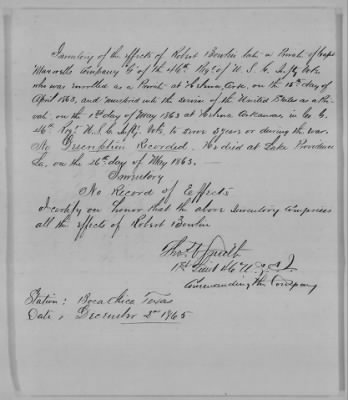 Inventory of the effects of Robert Bowlin late a Private of Capt
Maxwells Company "G" of the 46th Regt of U.S.C. Infty Vols.
who was enrolled as a Private at Helena, Ark. on the 10th day of
April 1863, and mustered into the service of the United States as a Pri-
vate on the 1st day of May 1863 at Helena Arkansas in Co G.
46th Regt U.S.C. Infty. Vols. to serve 3 years or during the war.
No Description Recorded. He died at Lake Providence
La., on the 26th day of May 1863.
Inventory
No Record of Effects
I certify on honor that the above Inventory comprises
all the effects of Robert Bowlin
Thos.
1st Lieut 46 U.S.C.I.
Commanding the Company
Station: Boca Chica Texas
Date, December 2d 1865